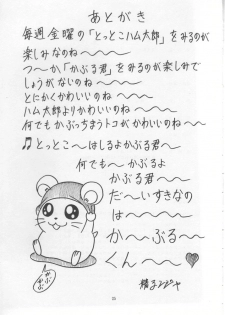 あとがき
毎週金曜の「とっとこハム太郎」をみるのが
楽しみなのね〜〜〜
つーか「かぶる君」をみるのが楽しみで
しょうがないのね〜〜〜
とにかくかわいいのね〜〜〜
ハム太郎よりかわいいのね〜〜〜
何でもかぶっちまうトコがかわいいのね〜〜
♫とっとこ〜はしるよかぶる君〜〜
何でも〜かぶるよ
かぶる君〜〜
だ〜いすきなの
は〜〜〜
か〜ぶる〜〜
くん〜〜〜♥